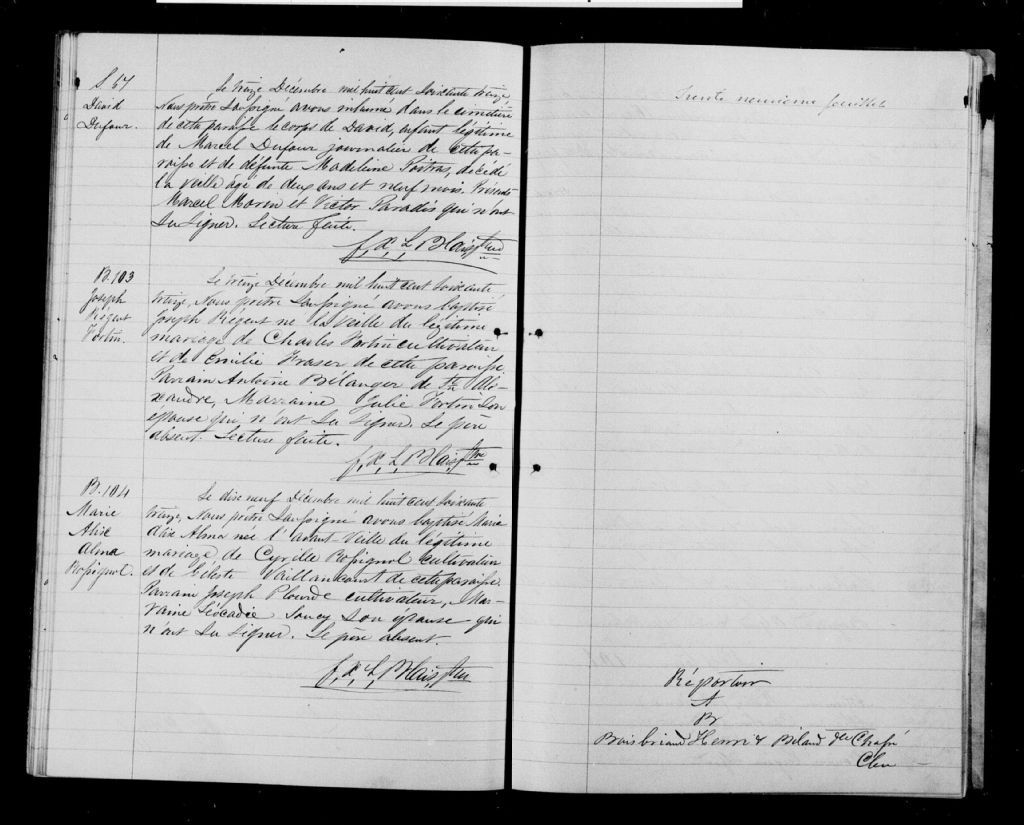 S. 67
David
Dufour.
Le treize Décembre mil huit cent soixante treize
Nous prêtre soussigné avons inhumé dans le cimetière
de cette paroisse le corps de David, enfant légitime
de Marcel Dufour journalier de cette pa-
roisse et de défunte Madeleine Poitras, décédé
la veille âgé de deux ans et neuf mois. Présents
Marcel Morin et Victor Paradis qui n'ont
su signer. Lecture faite.
f. x. L. Blais, ptre
B. 103
Joseph
Régent
Fortin.
Le treize Décembre mil huit cent soixante
treize, Nous prêtre soussigné avons baptisé
Joseph Régent né la veille du légitime
mariage de Charles Fortin cultivateur
et de Emilie Fraser de cette paroisse.
Parrain Antoine Bélanger de St. Ale-
xandre, Marraine Julie Fortin son
épouse qui n'ont su signer. Le père
absent. Lecture faite.
f. x. L. Blais, ptre
B. 104
Marie
Alise
Alma
Rossignol.
Le dix neuf Décembre mil huit cent soixante
treize, Nous prêtre soussigné avons baptisé Marie
Alise Alma née l'avant-veille du légitime
mariage de Cyrille Rossignol cultivateur
et de Céleste Vaillancourt de cette paroisse.
Parrain Joseph Plourde cultivateur, Mar-
raine Léocadie Soucy son épouse qui
n'ont su signer. Le père absent.
f. x. L. Blais, ptre
Trente neuvieme feuillet
Répertoire
A
B
Boisbriand Henri &